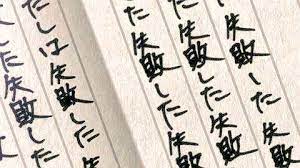 した失敗した失敗
失敗した失敗した
失敗した失敗した
たしは失敗した
た失敗した